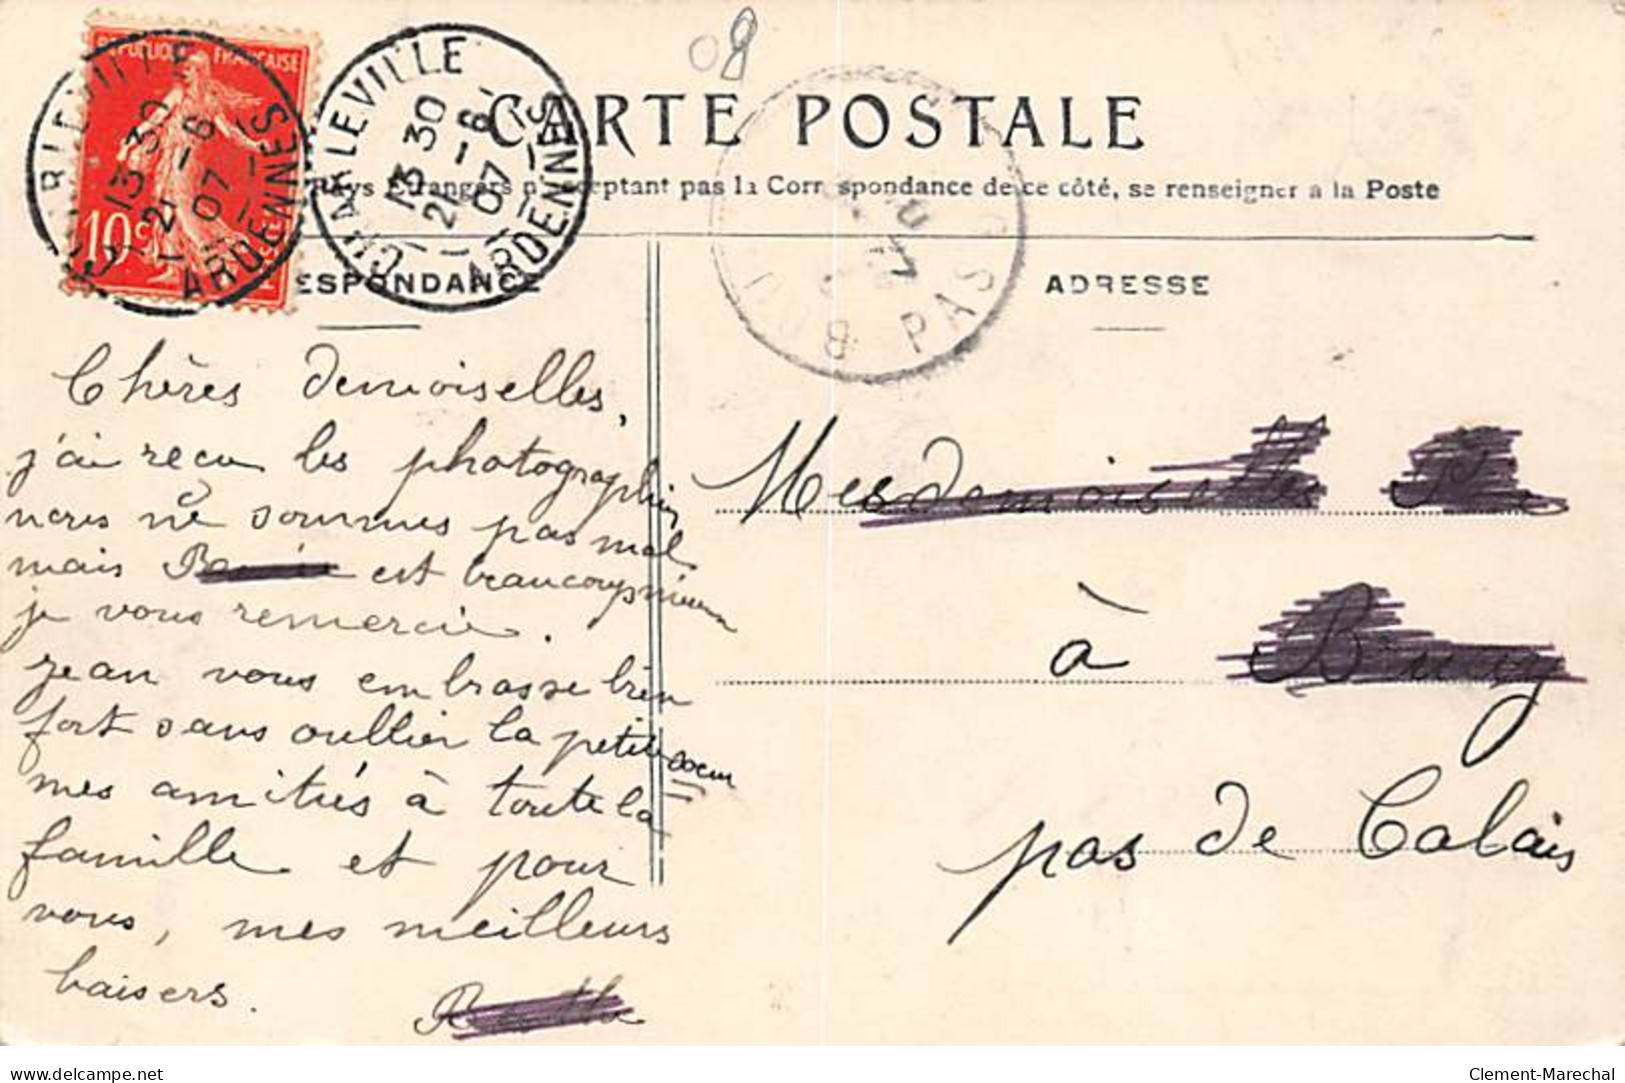 08
RÉPUBLIQUE FRANÇAISE
10c
CHARLEVILLE
13 30
21-6
07
ARDENNES
CHARLEVILLE
13 30
21-6
07
ARDENNES
CARTE POSTALE
Pays Etrangers n'acceptant pas la Correspondance de ce côté, se renseigner a la Poste
PAS
ESPONDANCE
ADRESSE
Chères demoiselles,
j'ai recu les photographies
nous ne sommes pas mal
mais est beaucoup mieux
je vous remercie.
Jean vous embrasse bien
fort sans oublier la petite soeur
mes amitiés à toute la
famille et pour
vous, mes meilleurs
baisers.
Mesdemoiselles
à
pas de Calais
delcampe.net
Clement-Marechal